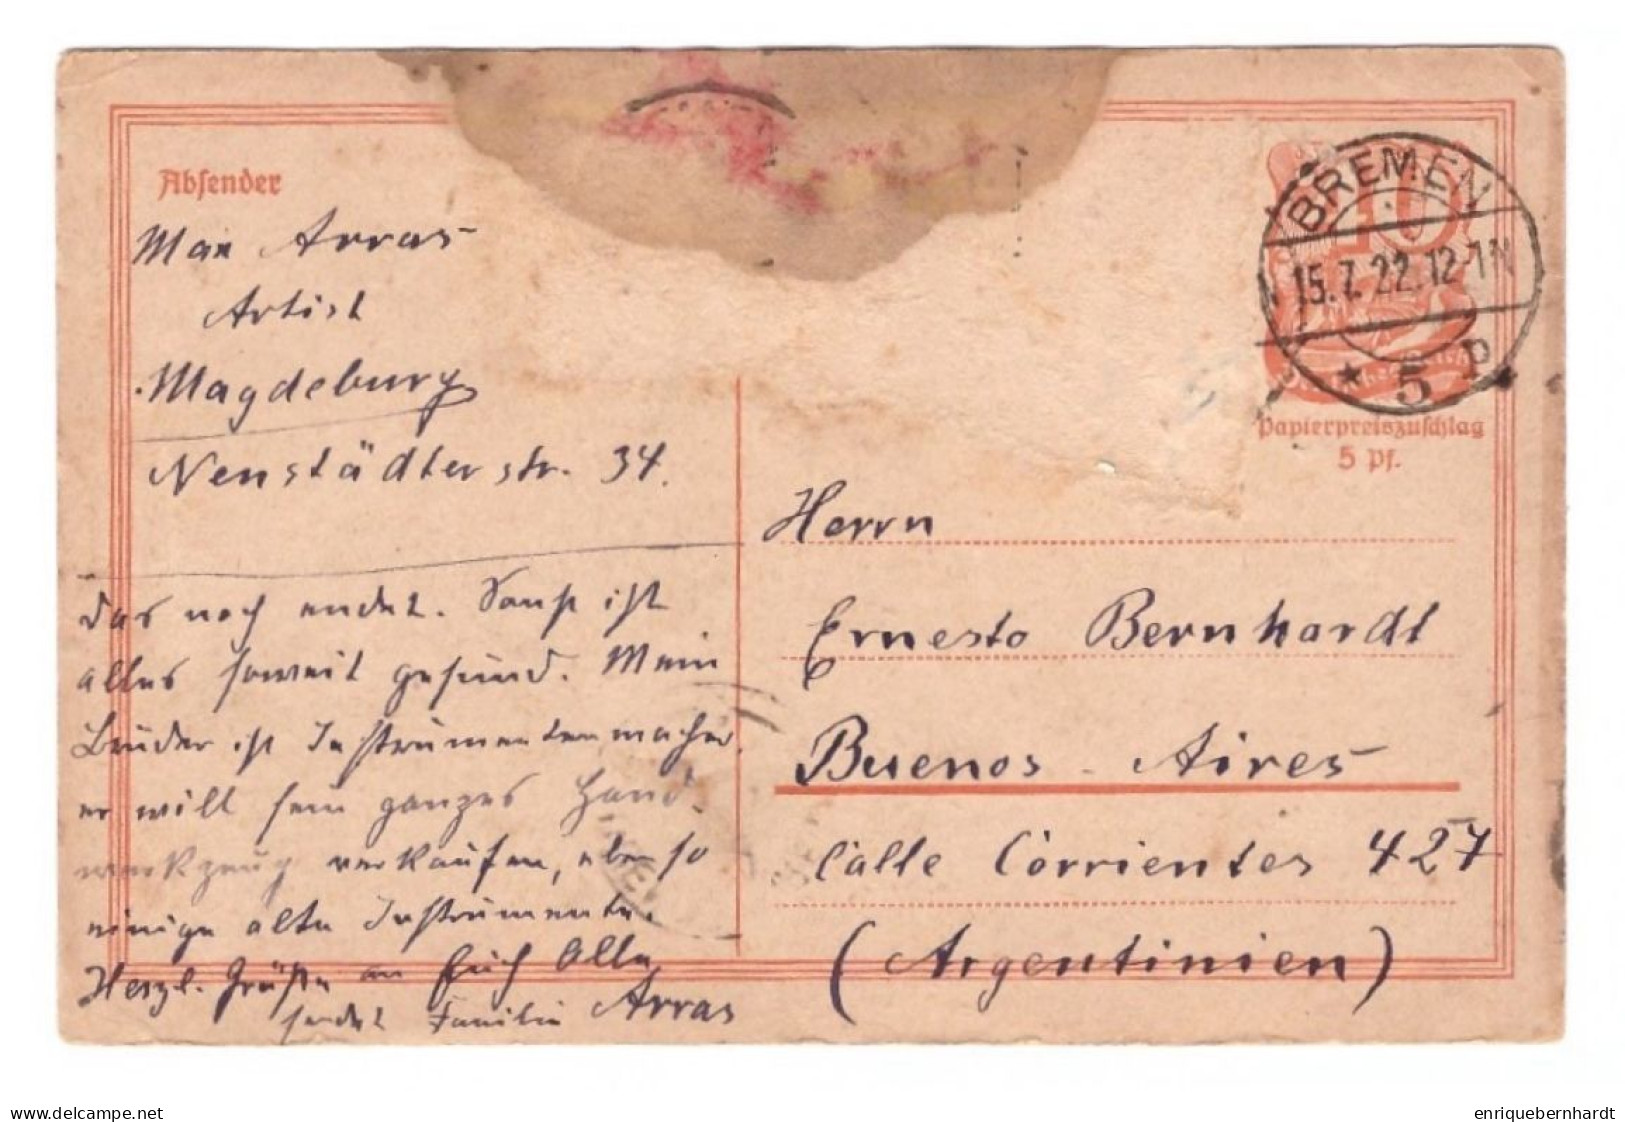 Absender
Max Arras
Artist
Magdeburg
Neustädterstr. 34.
das noch endet. Sonst ist
alles soweit gesund. Mein
Bruder ist Instrumentenmacher
er will sein ganzes Hand-
werkzeug verkaufen, eben so
einige alte Instrumente.
Herzl. Grüße an Euch Alle
sendet Familie Arras
BREMEN
15.7.22.12-1N
* 5 P
40
Papierpreiszuschlag
5 Pf.
Herrn
Ernesto Bernhardt
Buenos-Aires
Calle Corrientes 427
(Argentinien)
www.delcampe.net
enriquebernhardt